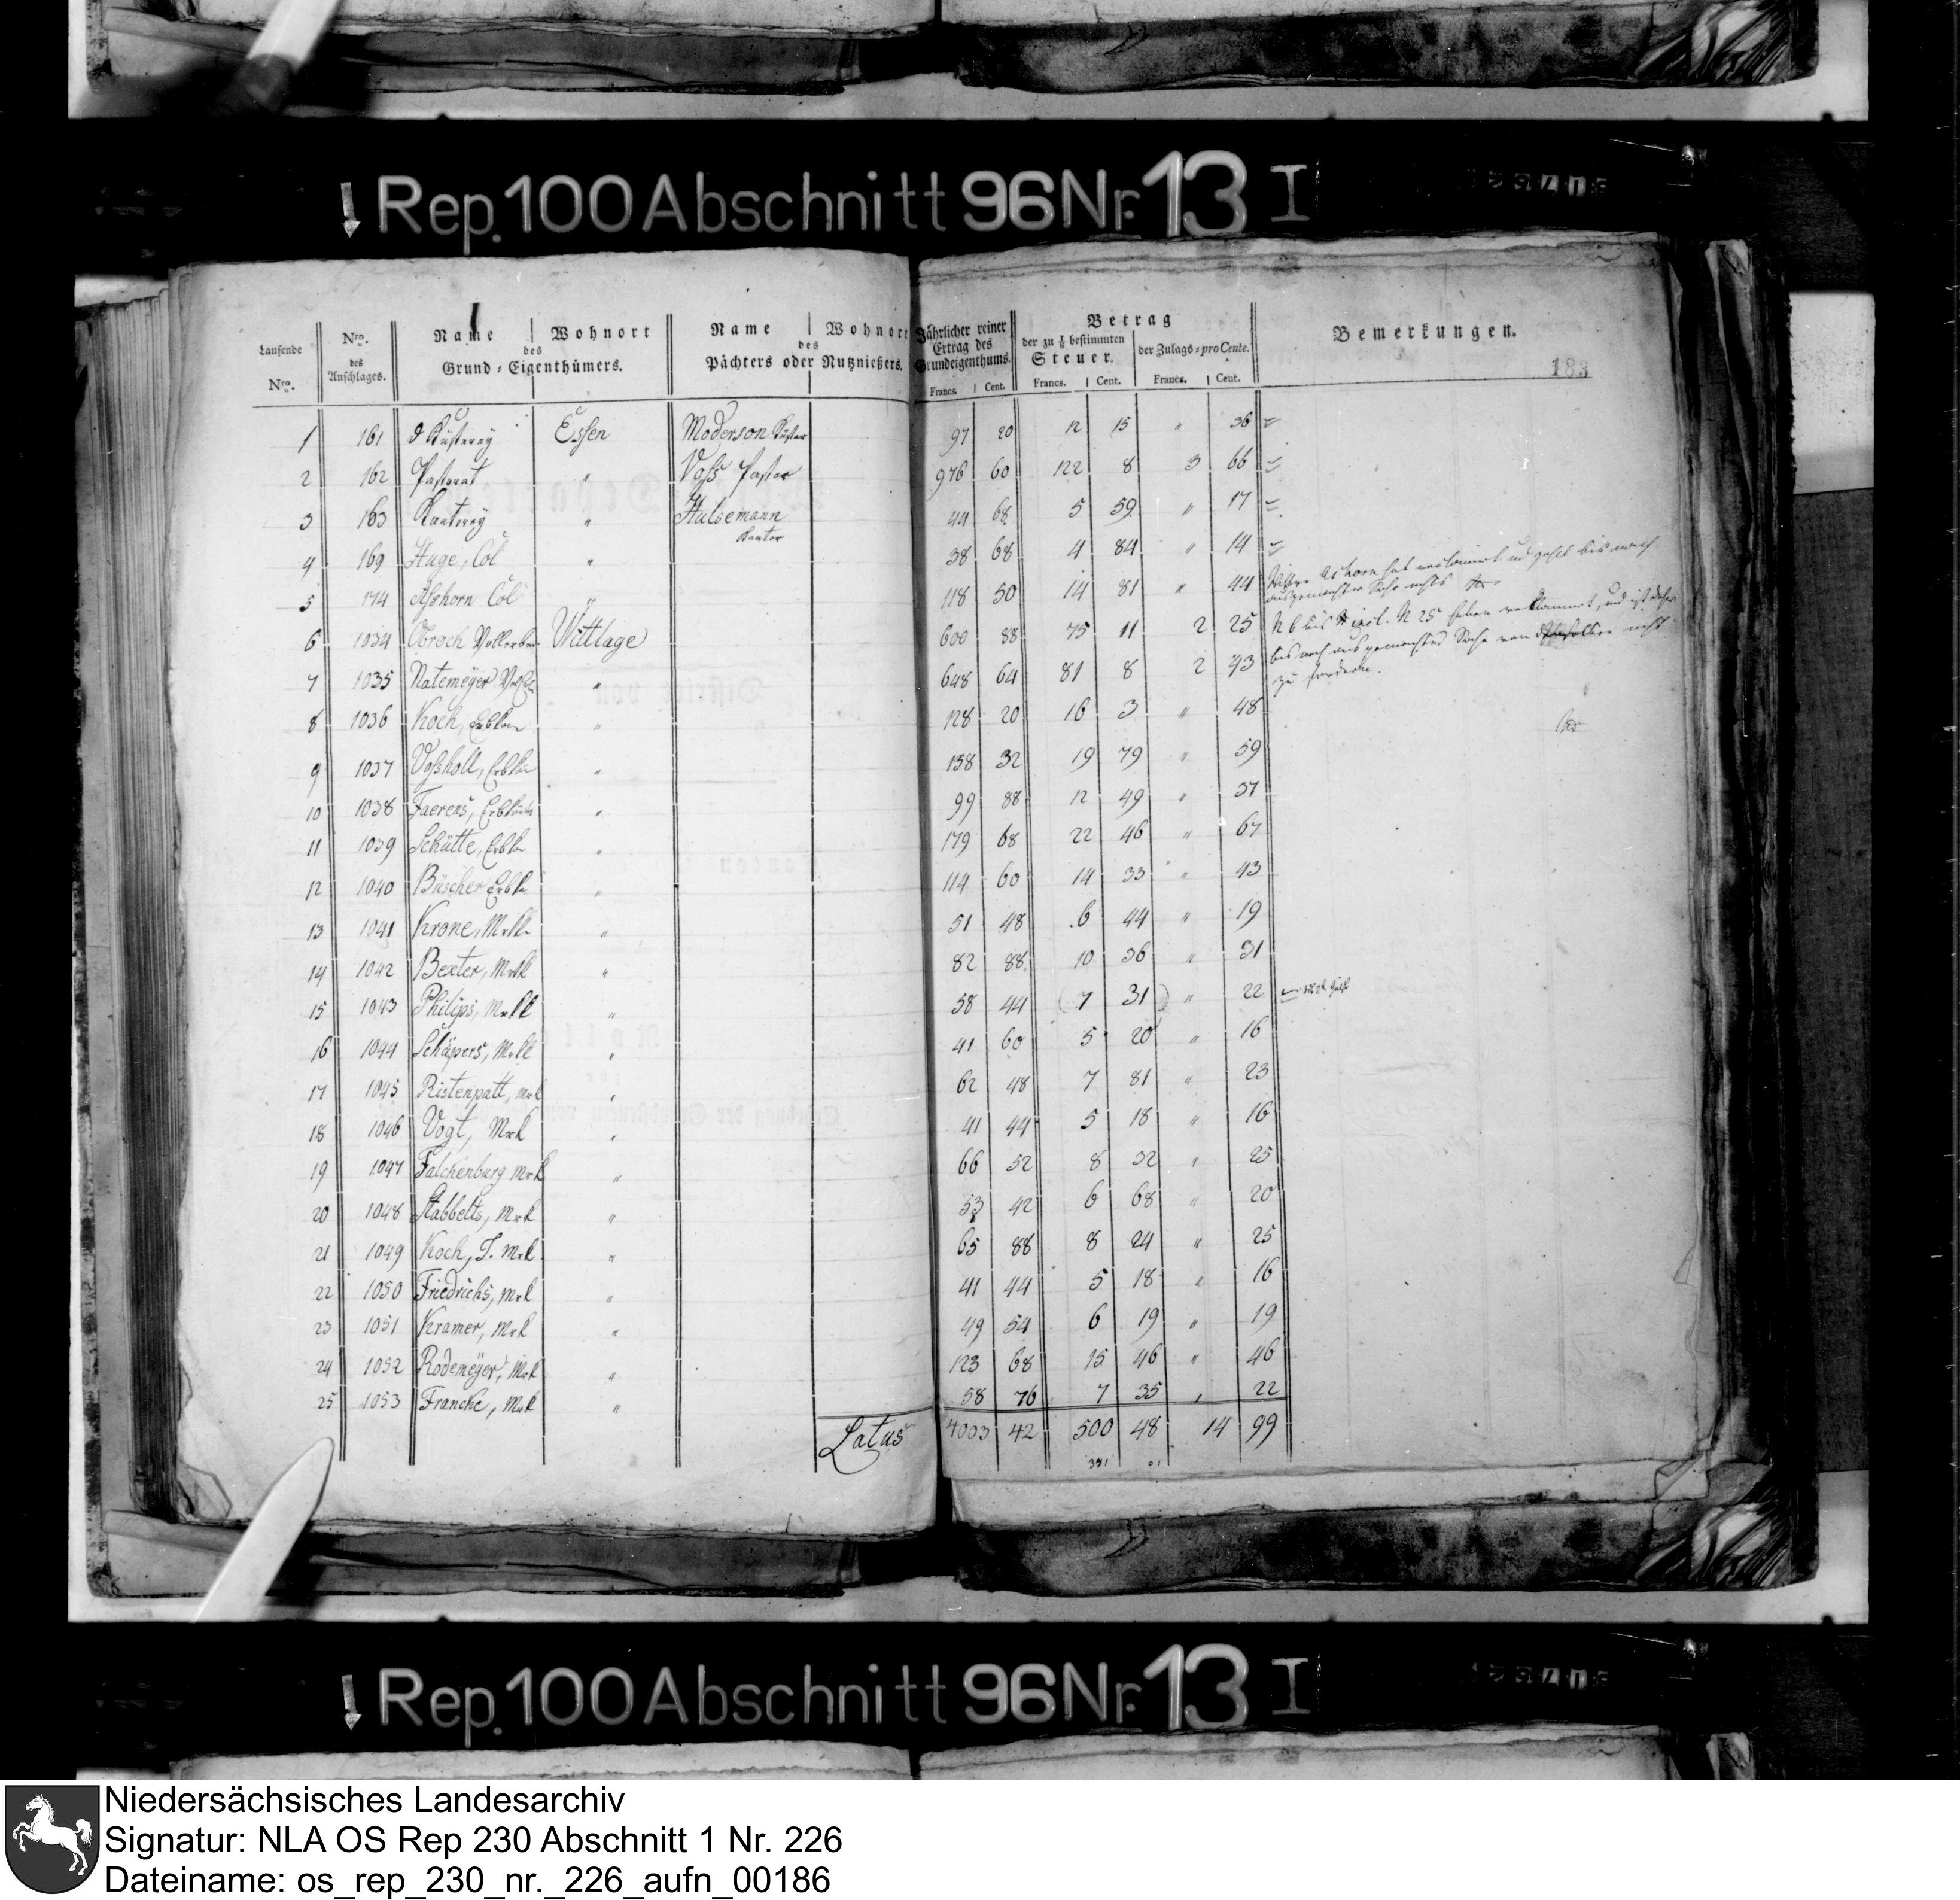 Rep. 100 Abschnitt 96 Nr. 13 I
Laufende Nro. | Nro. des Anschlages. | Name | Wohnort des Grund-Eigenthümers. | Name | Wohnort des Pächters oder Nutznießers. | Jährlicher reiner Ertrag des Grundeigenthums. Francs. Cent. | Betrag der zu 1/8 bestimmten Steuer. Francs. Cent. | der Zulags-proCente. Francs. Cent. | Bemerkungen.
183
1 161 d Küsterey Essen Moderson Küster 97 20 12 15 " 36
2 162 Pastorat " Voss Pastor 976 60 122 8 3 66
3 163 Kantorey " Hulsemann Kantor 44 68 5 59 " 17
4 169 Huge, Col " 38 68 4 84 " 14
5 174 Asshorn Col " 118 50 14 81 " 44
6 1034 Obroch Vollerbe Wittlage 600 88 75 11 2 25
7 1035 Natemeyer " 648 64 81 8 2 43
zu fordern.
8 1036 Koch, " 128 20 16 3 " 48
9 1037 Vossholl, " 158 32 19 79 " 59
10 1038 Faerens, " 99 88 12 49 " 37
11 1039 Schütte, " 179 68 22 46 " 67
12 1040 Büscher " 114 60 14 33 " 43
13 1041 Krone, " 51 48 6 44 " 19
14 1042 Bexter, Mrk " 82 88 10 36 " 31
15 1043 Philips, " 58 44 (7 31) " 22
16 1044 Schäpers, " 41 60 5 20 " 16
17 1045 Ristenpatt, Mrk " 62 48 7 81 " 23
18 1046 Vogt, Mrk " 41 44 5 18 " 16
19 1047 Falchenburg Mrk " 66 52 8 32 " 25
20 1048 Stabbelts, Mrk " 53 42 6 68 " 20
21 1049 Koch, J. Mrk " 65 88 8 24 " 25
22 1050 Friedrichs, Mrk " 41 44 5 18 " 16
23 1051 Kramer, Mrk " 49 54 6 19 " 19
24 1052 Rodemeyer, Mrk " 123 68 15 46 " 46
25 1053 Francke, Mrk " 58 76 7 35 " 22
Latus 4003 42 500 48 14 99
Rep. 100 Abschnitt 96 Nr. 13 I
Niedersächsisches Landesarchiv
Signatur: NLA OS Rep 230 Abschnitt 1 Nr. 226
Dateiname: os_rep_230_nr._226_aufn_00186